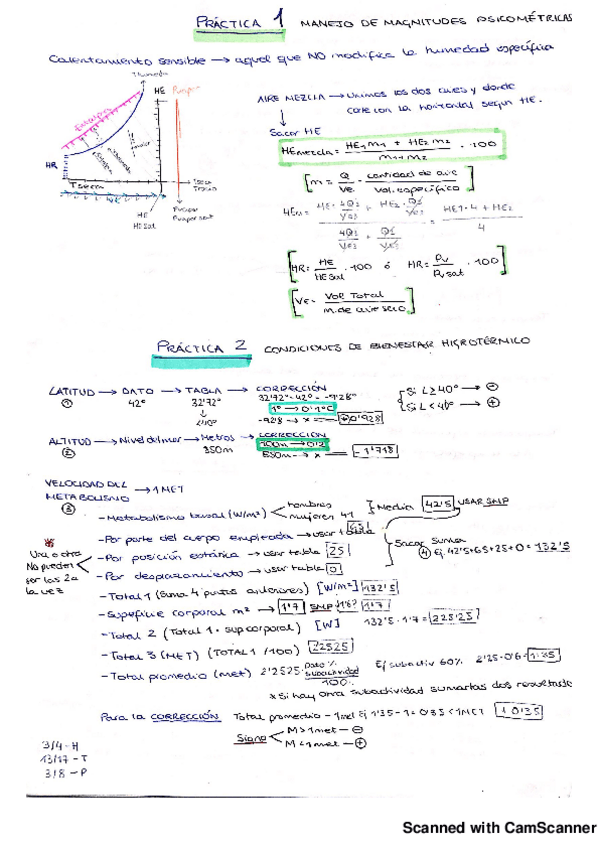 PRÁCTICA 1 MANEJO DE MAGNITUDES PSICOMÉTRICAS
Calentamiento sensible → aquel que NO modifica la humedad específica
HE
HR
Entalpia
Tseca
HE
HEsat
AIRE MEZCLA → Unimos los dos aires y donde
corte con la horizontal según HE.
Sacar HE
HEmezcla = HE1m1 + HE2m2 / m1+m2 · 100
[m = Q/Ve = cantidad de aire / vol. específico]
HE1·4 + HE2 / 4
[HR = HE/HEsat · 100 ó HR = Pv/Pvsat · 100]
[Ve = Vol. Total / m. de aire seco]
PRÁCTICA 2 CONDICIONES DE BIENESTAR HIGROTÉRMICO
LATITUD → DATO → TABLA → CORRECCIÓN
① 42° 32'72° 32'72° - 42° = -9'28°
<40° 1° → 0'1°C
-9'28 → x = +0'928
Si L≥40° → ⊖
Si L<40° → ⊕
ALTITUD → Nivel del mar → Metros → CORRECCIÓN
② 850m 100m → 0'2
850m → x = -1'718
VELOCIDAD DEL
METABOLISMO → 1 MET
③
- Metabolismo basal (W/m²) hombres
mujeres 41 } Media 42'5 USAR SMP
- Por parte del cuerpo empleada → usar tabla 65
- Por posición estática → usar tabla 25
- Por desplazamiento → usar tabla 0
Una u otra
No pueden
ser las 2 a
la vez
Sacar suma
④ Ej. 42'5+65+25+0 = 132'5
- Total 1 (Suma 4 puntos anteriores) [W/m²] 132'5
- Superficie corporal m² → 1'7 SMP 1'8? 1'7
- Total 2 (Total 1 · sup corporal) [W] 132'5 · 1'7 = 225'25
- Total 3 (MET) (TOTAL 1 /100) 2'2525
- Total promedio (met) 2'2525 · Dato % subactividad / 100 Ej subactiv 60% 2'25 · 0'6 = 1'35
* Si hay otra subactividad sumar las dos resultado
Para la CORRECCIÓN Total promedio - 1 met Ej 1'35 - 1 = 0'35 < 1 MET +0'35
Signo M > 1 met - ⊖
M < 1 met - ⊕
3/4 - H
13/17 - T
3/8 - P
Scanned with CamScanner